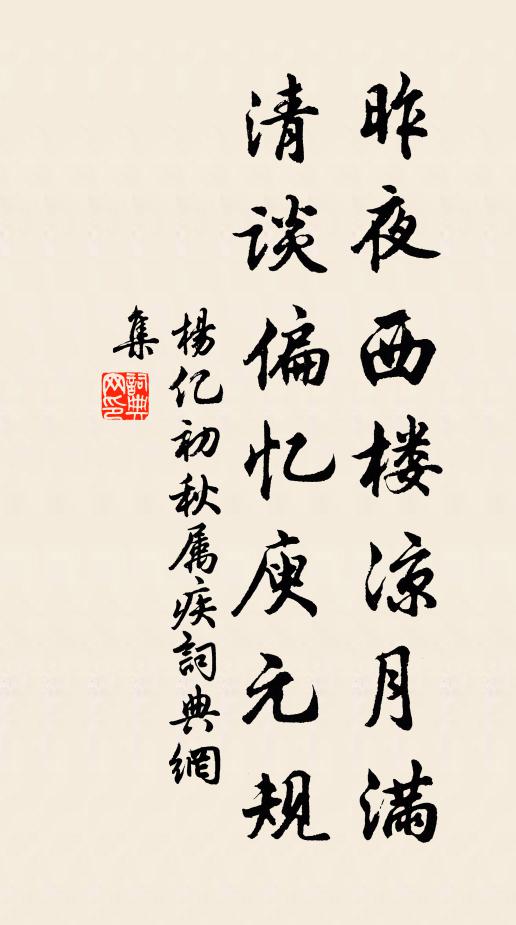 昨夜西楼凉月满
清谈偏忆庾元规
杨亿初秋属疾词典網
集
詞典
网印